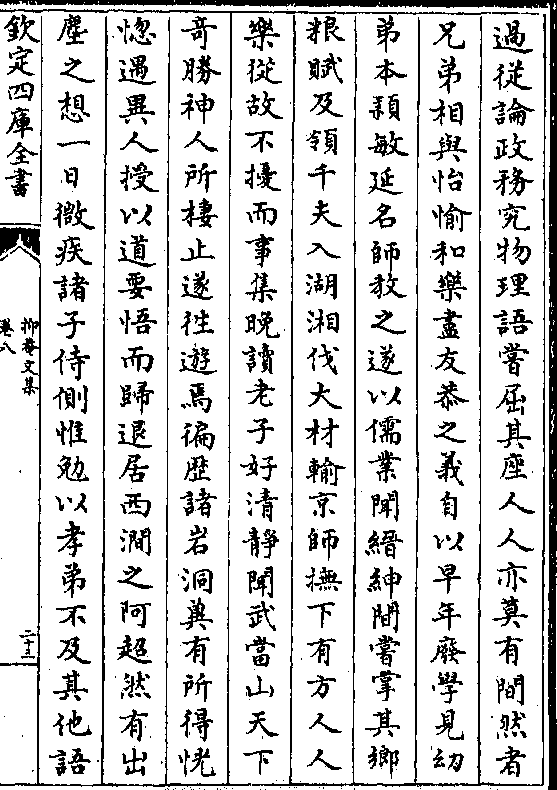 過從論政務究物理語嘗屈其座人人亦莫有間然者
兄弟相與怡愉和樂盡友恭之義自以早年廢學見幼
弟本穎敏延名師教之遂以儒業聞縉紳間嘗掌其鄉
粮賦及領千夫入湖湘伐大材輸京師撫下有方人人
樂從故不擾而事集晚讀老子好清靜聞武當山天下
奇勝神人所棲止遂徃遊焉徧歴諸岩洞兾有所得恍
惚遇異人授以道要悟而歸退居西澗之阿超然有出
塵之想一日微疾諸子侍側惟勉以孝弟不及其他語
欽定四庫全書
抑菴文集
卷八
二十三